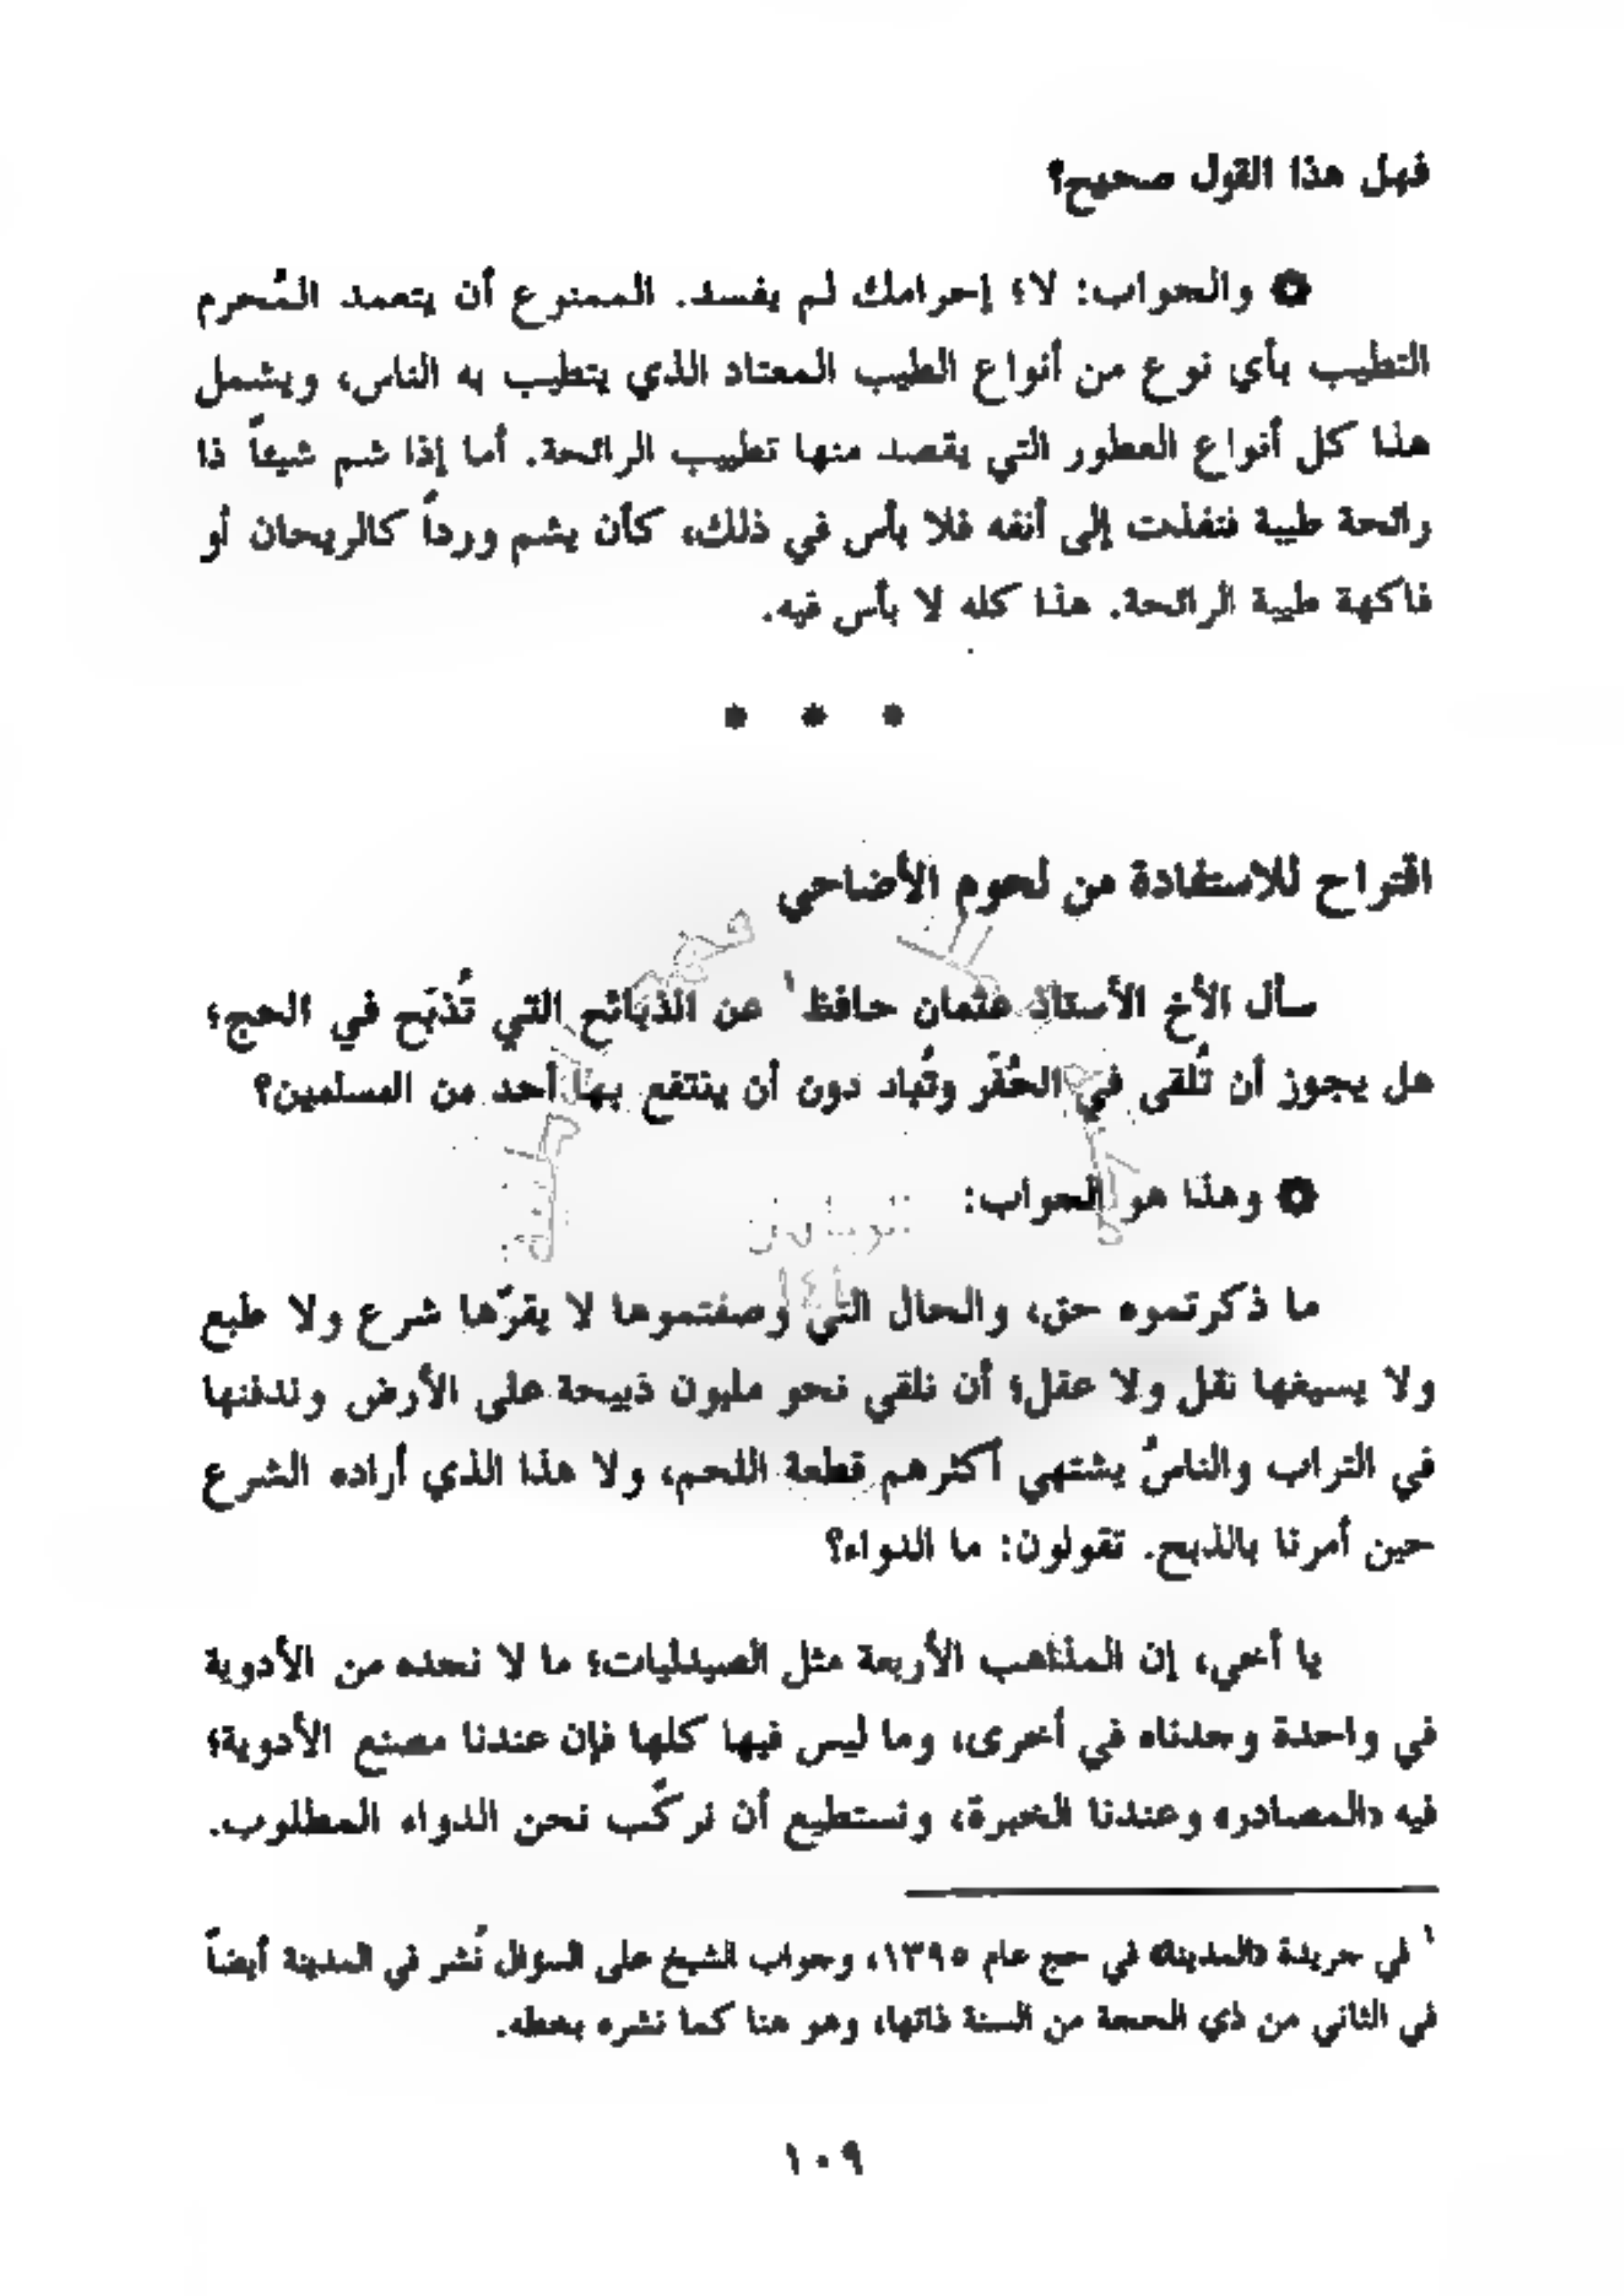 فهل هذا القول صحيح؟
والجواب: لا؛ إحرامك لم يفسد. الممنوع أن يتعمد المُحرم
التطيب بأي نوع من أنواع الطيب المعتاد الذي يتطيب به الناس، ويشمل
هذا كل أنواع العطور التي يقصد منها تطييب الرائحة. أما إذا شم شيئاً ذا
رائحة طيبة فنفذت إلى أنفه فلا بأس في ذلك، كأن يشم ورداً كالريحان أو
فاكهة طيبة الرائحة. هذا كله لا بأس فيه.
* * *
اقتراح للاستفادة من لحوم الأضاحي
سأل الأخ الأستاذ عثمان حافظ١ عن الذبائح التي تُذبَح في الحج؛
هل يجوز أن تُلقى في الحُفَر وتُباد دون أن ينتفع بها أحد من المسلمين؟
وهذا هو الجواب:
ما ذكرتموه حق، والحال التي وصفتموها لا يقرّها شرع ولا طبع
ولا يسيغها نقل ولا عقل؛ أن نلقي نحو مليون ذبيحة على الأرض وندفنها
في التراب والناسُ يشتهي أكثرهم قطعة اللحم، ولا هذا الذي أراده الشرع
حين أمرنا بالذبح. تقولون: ما الدواء؟
يا أخي، إن المذاهب الأربعة مثل الصيدليات؛ ما لا نجده من الأدوية
في واحدة وجدناه في أخرى، وما ليس فيها كلها فإن عندنا مصنع الأدوية؛
فيه «المصادر» وعندنا الخبرة، ونستطيع أن نركّب نحن الدواء المطلوب.
١ في جريدة «المدينة» في حج عام ١٣٩٥، وجواب الشيخ على السؤال نُشر في المدينة أيضاً
في الثاني من ذي الحجة من السنة ذاتها، وهو هنا كما نشره بخطه.
١٠٩